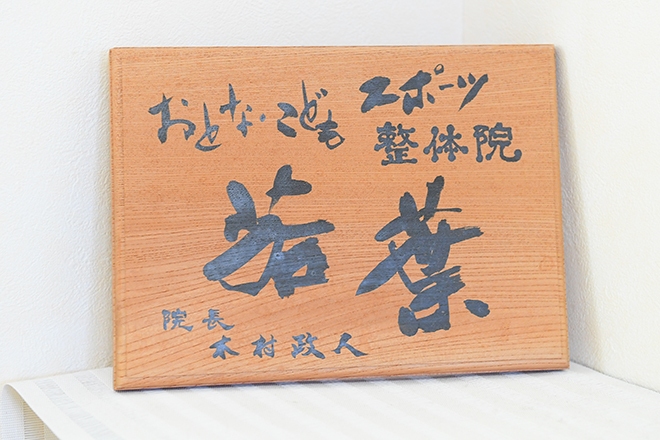 おとな・こども スポーツ
整体院
若葉
院長
木村政人